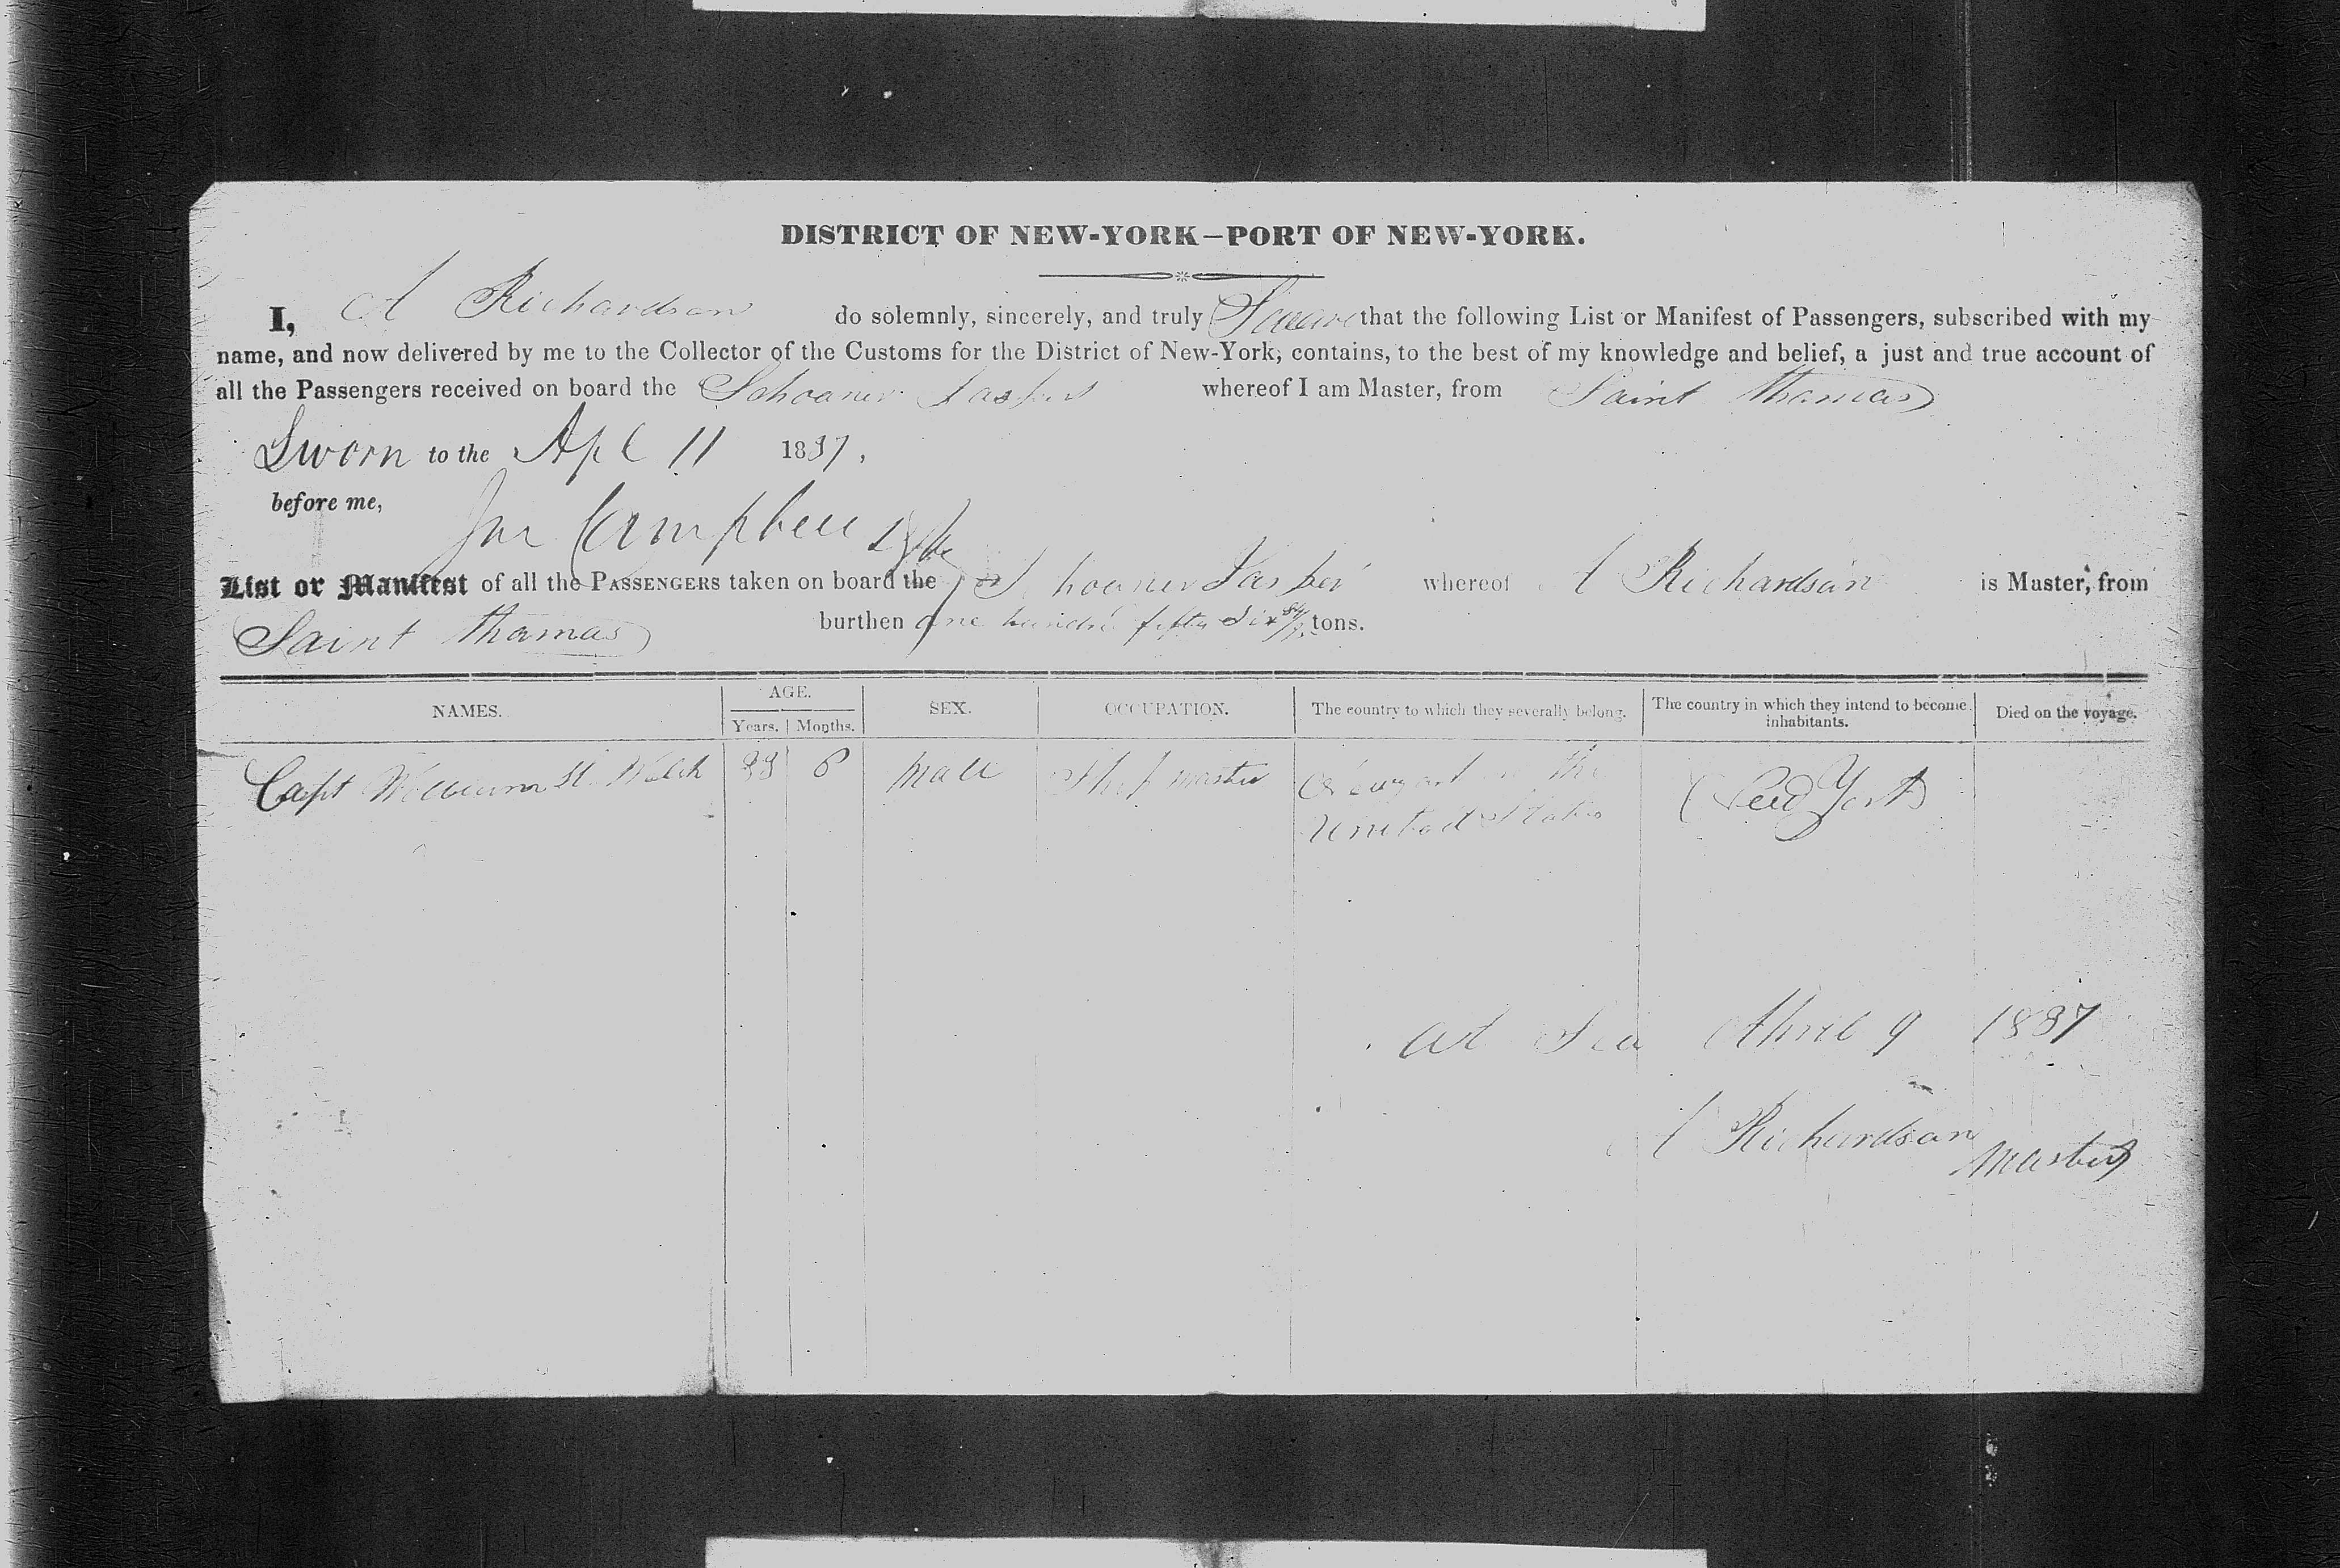 DISTRICT OF NEW-YORK—PORT OF NEW-YORK.
I, A Richardson do solemnly, sincerely, and truly Swear that the following List or Manifest of Passengers, subscribed with my
name, and now delivered by me to the Collector of the Customs for the District of New-York, contains, to the best of my knowledge and belief, a just and true account of
all the Passengers received on board the Schooner Jasper whereof I am Master, from Saint Thomas
Sworn to the Apl 11 1837,
before me,
Campbell
List or Manifest of all the PASSENGERS taken on board the Schooner Jasper whereof A Richardson is Master, from
Saint Thomas burthen one hundred fifty six tons.
NAMES. AGE. SEX. OCCUPATION. The country to which they severally belong. The country in which they intend to become inhabitants. Died on the voyage.
Years. Months.
Capt William Welch 33 6 Male Ship master the New York
United States
at Sea April 9 1837
A Richardson
Master